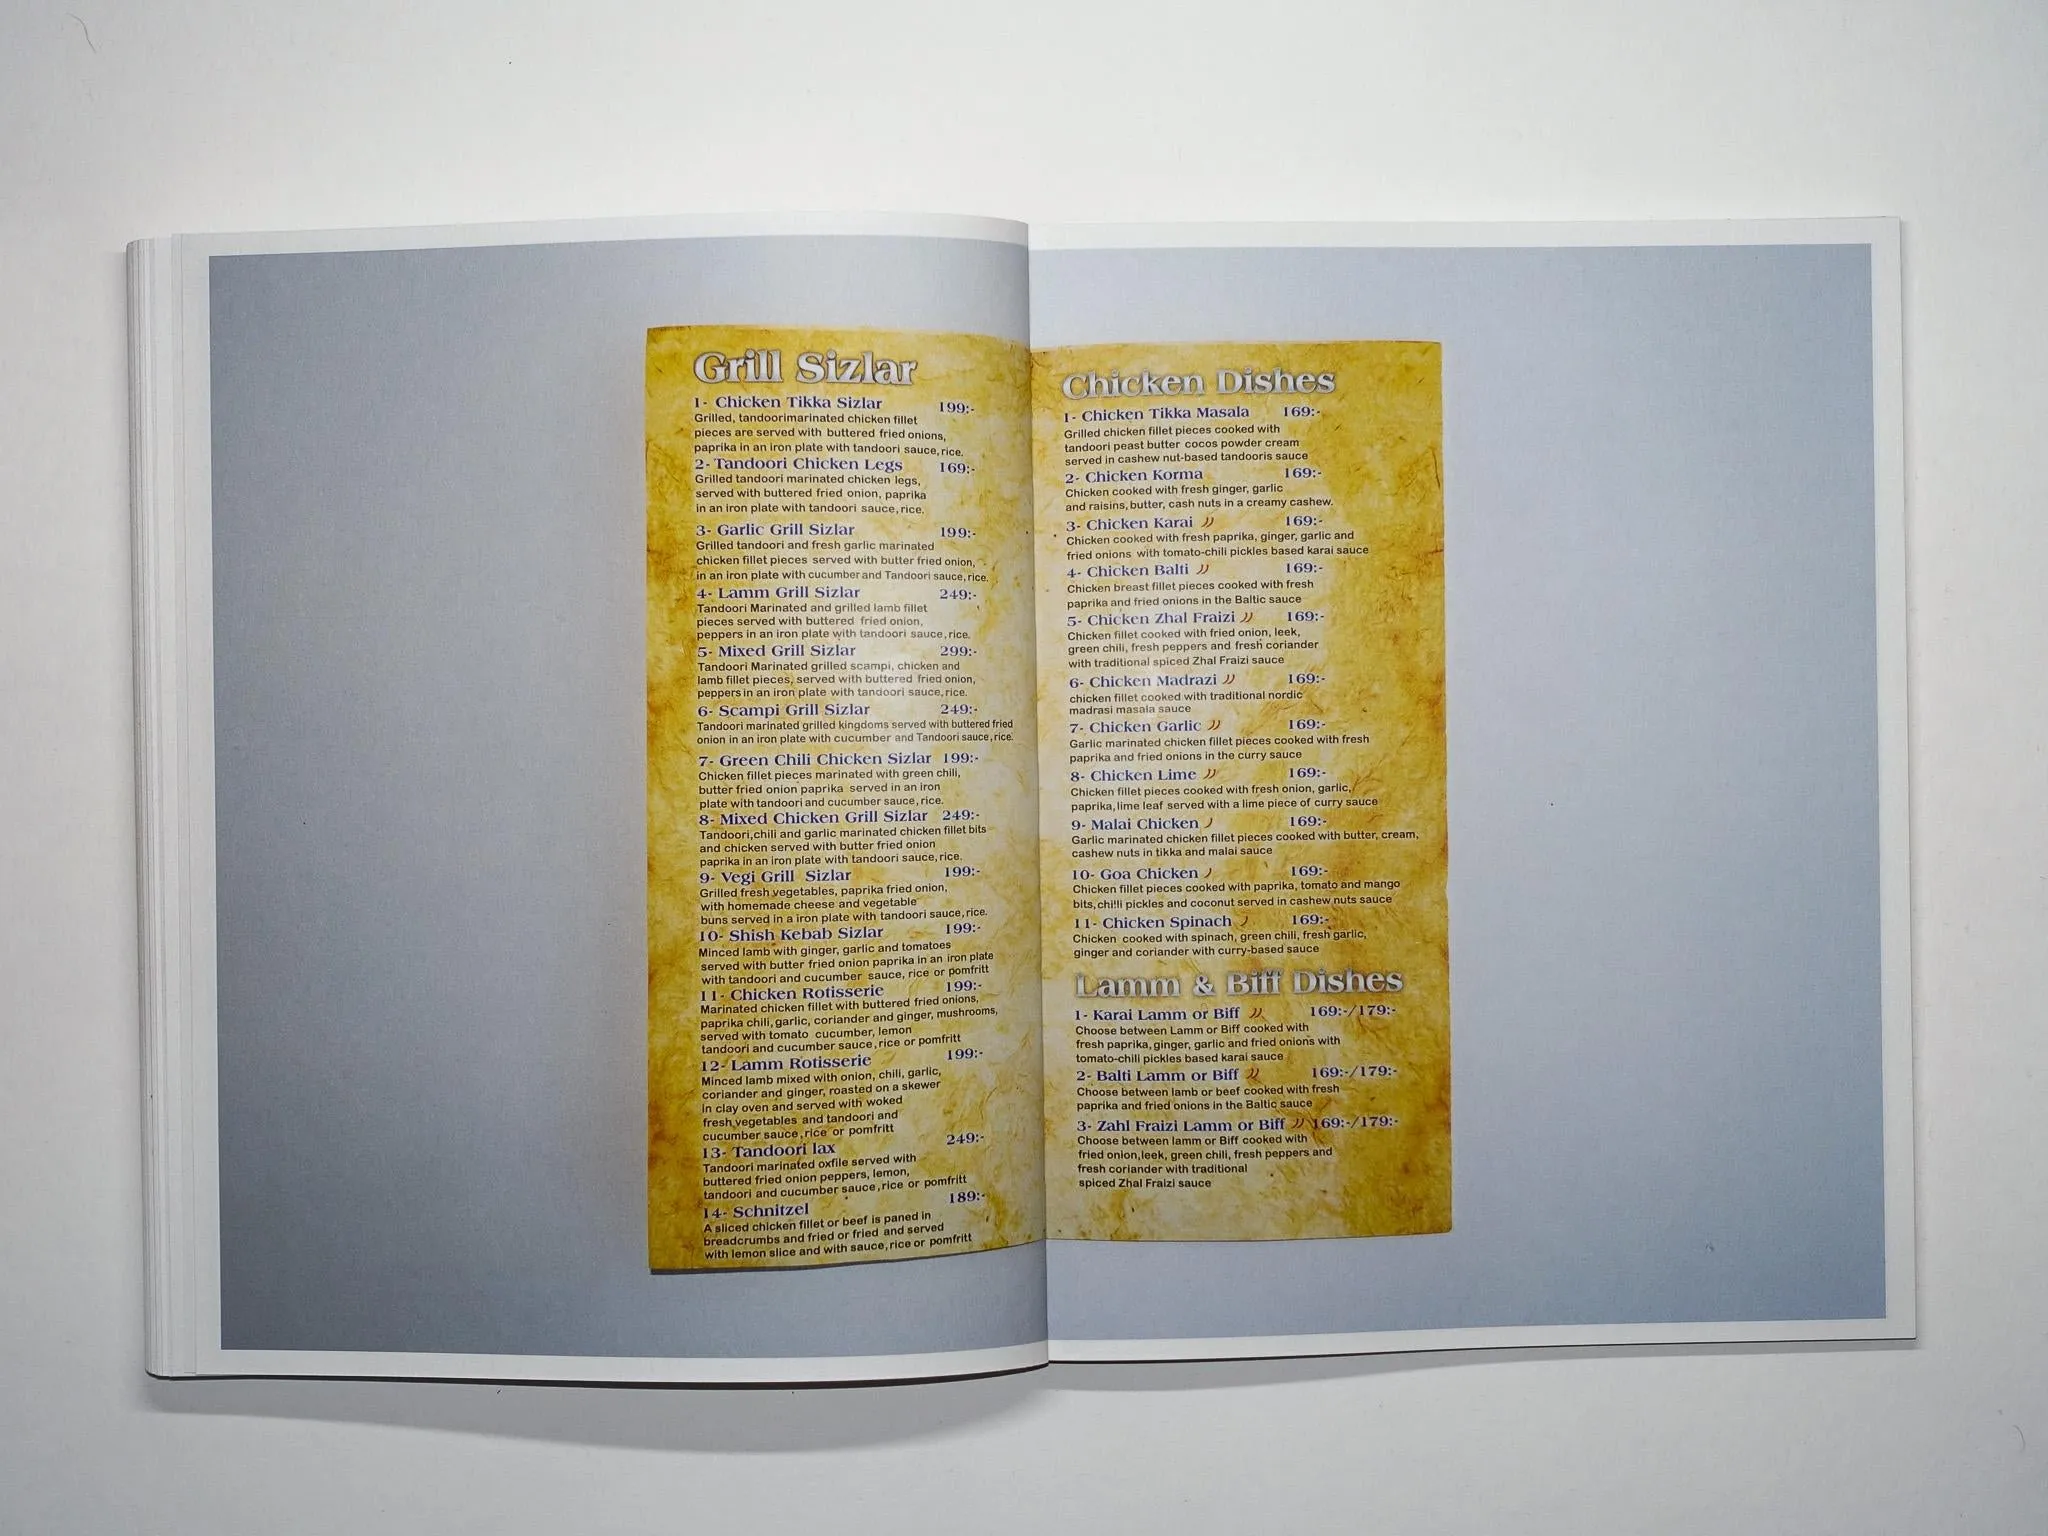 Grill Sizlar
1- Chicken Tikka Sizlar 199:-
Grilled, tandoorimarinated chicken fillet
pieces are served with buttered fried onions,
paprika in an iron plate with tandoori sauce, rice.
2- Tandoori Chicken Legs 169:-
Grilled tandoori marinated chicken legs,
served with buttered fried onion, paprika
in an iron plate with tandoori sauce, rice.
3- Garlic Grill Sizlar 199:-
Grilled tandoori and fresh garlic marinated
chicken fillet pieces served with butter fried onion,
in an iron plate with cucumber and Tandoori sauce, rice.
4- Lamm Grill Sizlar 249:-
Tandoori Marinated and grilled lamb fillet
pieces served with buttered fried onion,
peppers in an iron plate with tandoori sauce, rice.
5- Mixed Grill Sizlar 299:-
Tandoori Marinated grilled scampi, chicken and
lamb fillet pieces, served with buttered fried onion,
peppers in an iron plate with tandoori sauce, rice.
6- Scampi Grill Sizlar 249:-
Tandoori marinated grilled kingdoms served with buttered fried
onion in an iron plate with cucumber and Tandoori sauce, rice.
7- Green Chili Chicken Sizlar 199:-
Chicken fillet pieces marinated with green chili,
butter fried onion paprika served in an iron
plate with tandoori and cucumber sauce, rice.
8- Mixed Chicken Grill Sizlar 249:-
Tandoori, chili and garlic marinated chicken fillet bits
and chicken served with butter fried onion
paprika in an iron plate with tandoori sauce, rice.
9- Vegi Grill Sizlar 199:-
Grilled fresh vegetables, paprika fried onion,
with homemade cheese and vegetable
buns served in a iron plate with tandoori sauce, rice.
10- Shish Kebab Sizlar 199:-
Minced lamb with ginger, garlic and tomatoes
served with butter fried onion paprika in an iron plate
with tandoori and cucumber sauce, rice or pomfritt
11- Chicken Rotisserie 199:-
Marinated chicken fillet with buttered fried onions,
paprika chili, garlic, coriander and ginger, mushrooms,
served with tomato cucumber, lemon
tandoori and cucumber sauce, rice or pomfritt
12- Lamm Rotisserie 199:-
Minced lamb mixed with onion, chili, garlic,
coriander and ginger, roasted on a skewer
in clay oven and served with woked
fresh vegetables and tandoori and
cucumber sauce, rice or pomfritt
13- Tandoori lax 249:-
Tandoori marinated oxfile served with
buttered fried onion peppers, lemon,
tandoori and cucumber sauce, rice or pomfritt
14- Schnitzel 189:-
A sliced chicken fillet or beef is paned in
breadcrumbs and fried or fried and served
with lemon slice and with sauce, rice or pomfritt
Chicken Dishes
1- Chicken Tikka Masala 169:-
Grilled chicken fillet pieces cooked with
tandoori peast butter cocos powder cream
served in cashew nut-based tandooris sauce
2- Chicken Korma 169:-
Chicken cooked with fresh ginger, garlic
and raisins, butter, cash nuts in a creamy cashew.
3- Chicken Karai 169:-
Chicken cooked with fresh paprika, ginger, garlic and
fried onions with tomato-chili pickles based karai sauce
4- Chicken Balti 169:-
Chicken breast fillet pieces cooked with fresh
paprika and fried onions in the Baltic sauce
5- Chicken Zhal Fraizi 169:-
Chicken fillet cooked with fried onion, leek,
green chili, fresh peppers and fresh coriander
with traditional spiced Zhal Fraizi sauce
6- Chicken Madrazi 169:-
chicken fillet cooked with traditional nordic
madrasi masala sauce
7- Chicken Garlic 169:-
Garlic marinated chicken fillet pieces cooked with fresh
paprika and fried onions in the curry sauce
8- Chicken Lime 169:-
Chicken fillet pieces cooked with fresh onion, garlic,
paprika, lime leaf served with a lime piece of curry sauce
9- Malai Chicken 169:-
Garlic marinated chicken fillet pieces cooked with butter, cream,
cashew nuts in tikka and malai sauce
10- Goa Chicken 169:-
Chicken fillet pieces cooked with paprika, tomato and mango
bits, chilli pickles and coconut served in cashew nuts sauce
11- Chicken Spinach 169:-
Chicken cooked with spinach, green chili, fresh garlic,
ginger and coriander with curry-based sauce
Lamm & Biff Dishes
1- Karai Lamm or Biff 169:-/179:-
Choose between Lamm or Biff cooked with
fresh paprika, ginger, garlic and fried onions with
tomato-chili pickles based karai sauce
2- Balti Lamm or Biff 169:-/179:-
Choose between lamb or beef cooked with fresh
paprika and fried onions in the Baltic sauce
3- Zahl Fraizi Lamm or Biff 169:-/179:-
Choose between lamm or Biff cooked with
fried onion, leek, green chili, fresh peppers and
fresh coriander with traditional
spiced Zhal Fraizi sauce